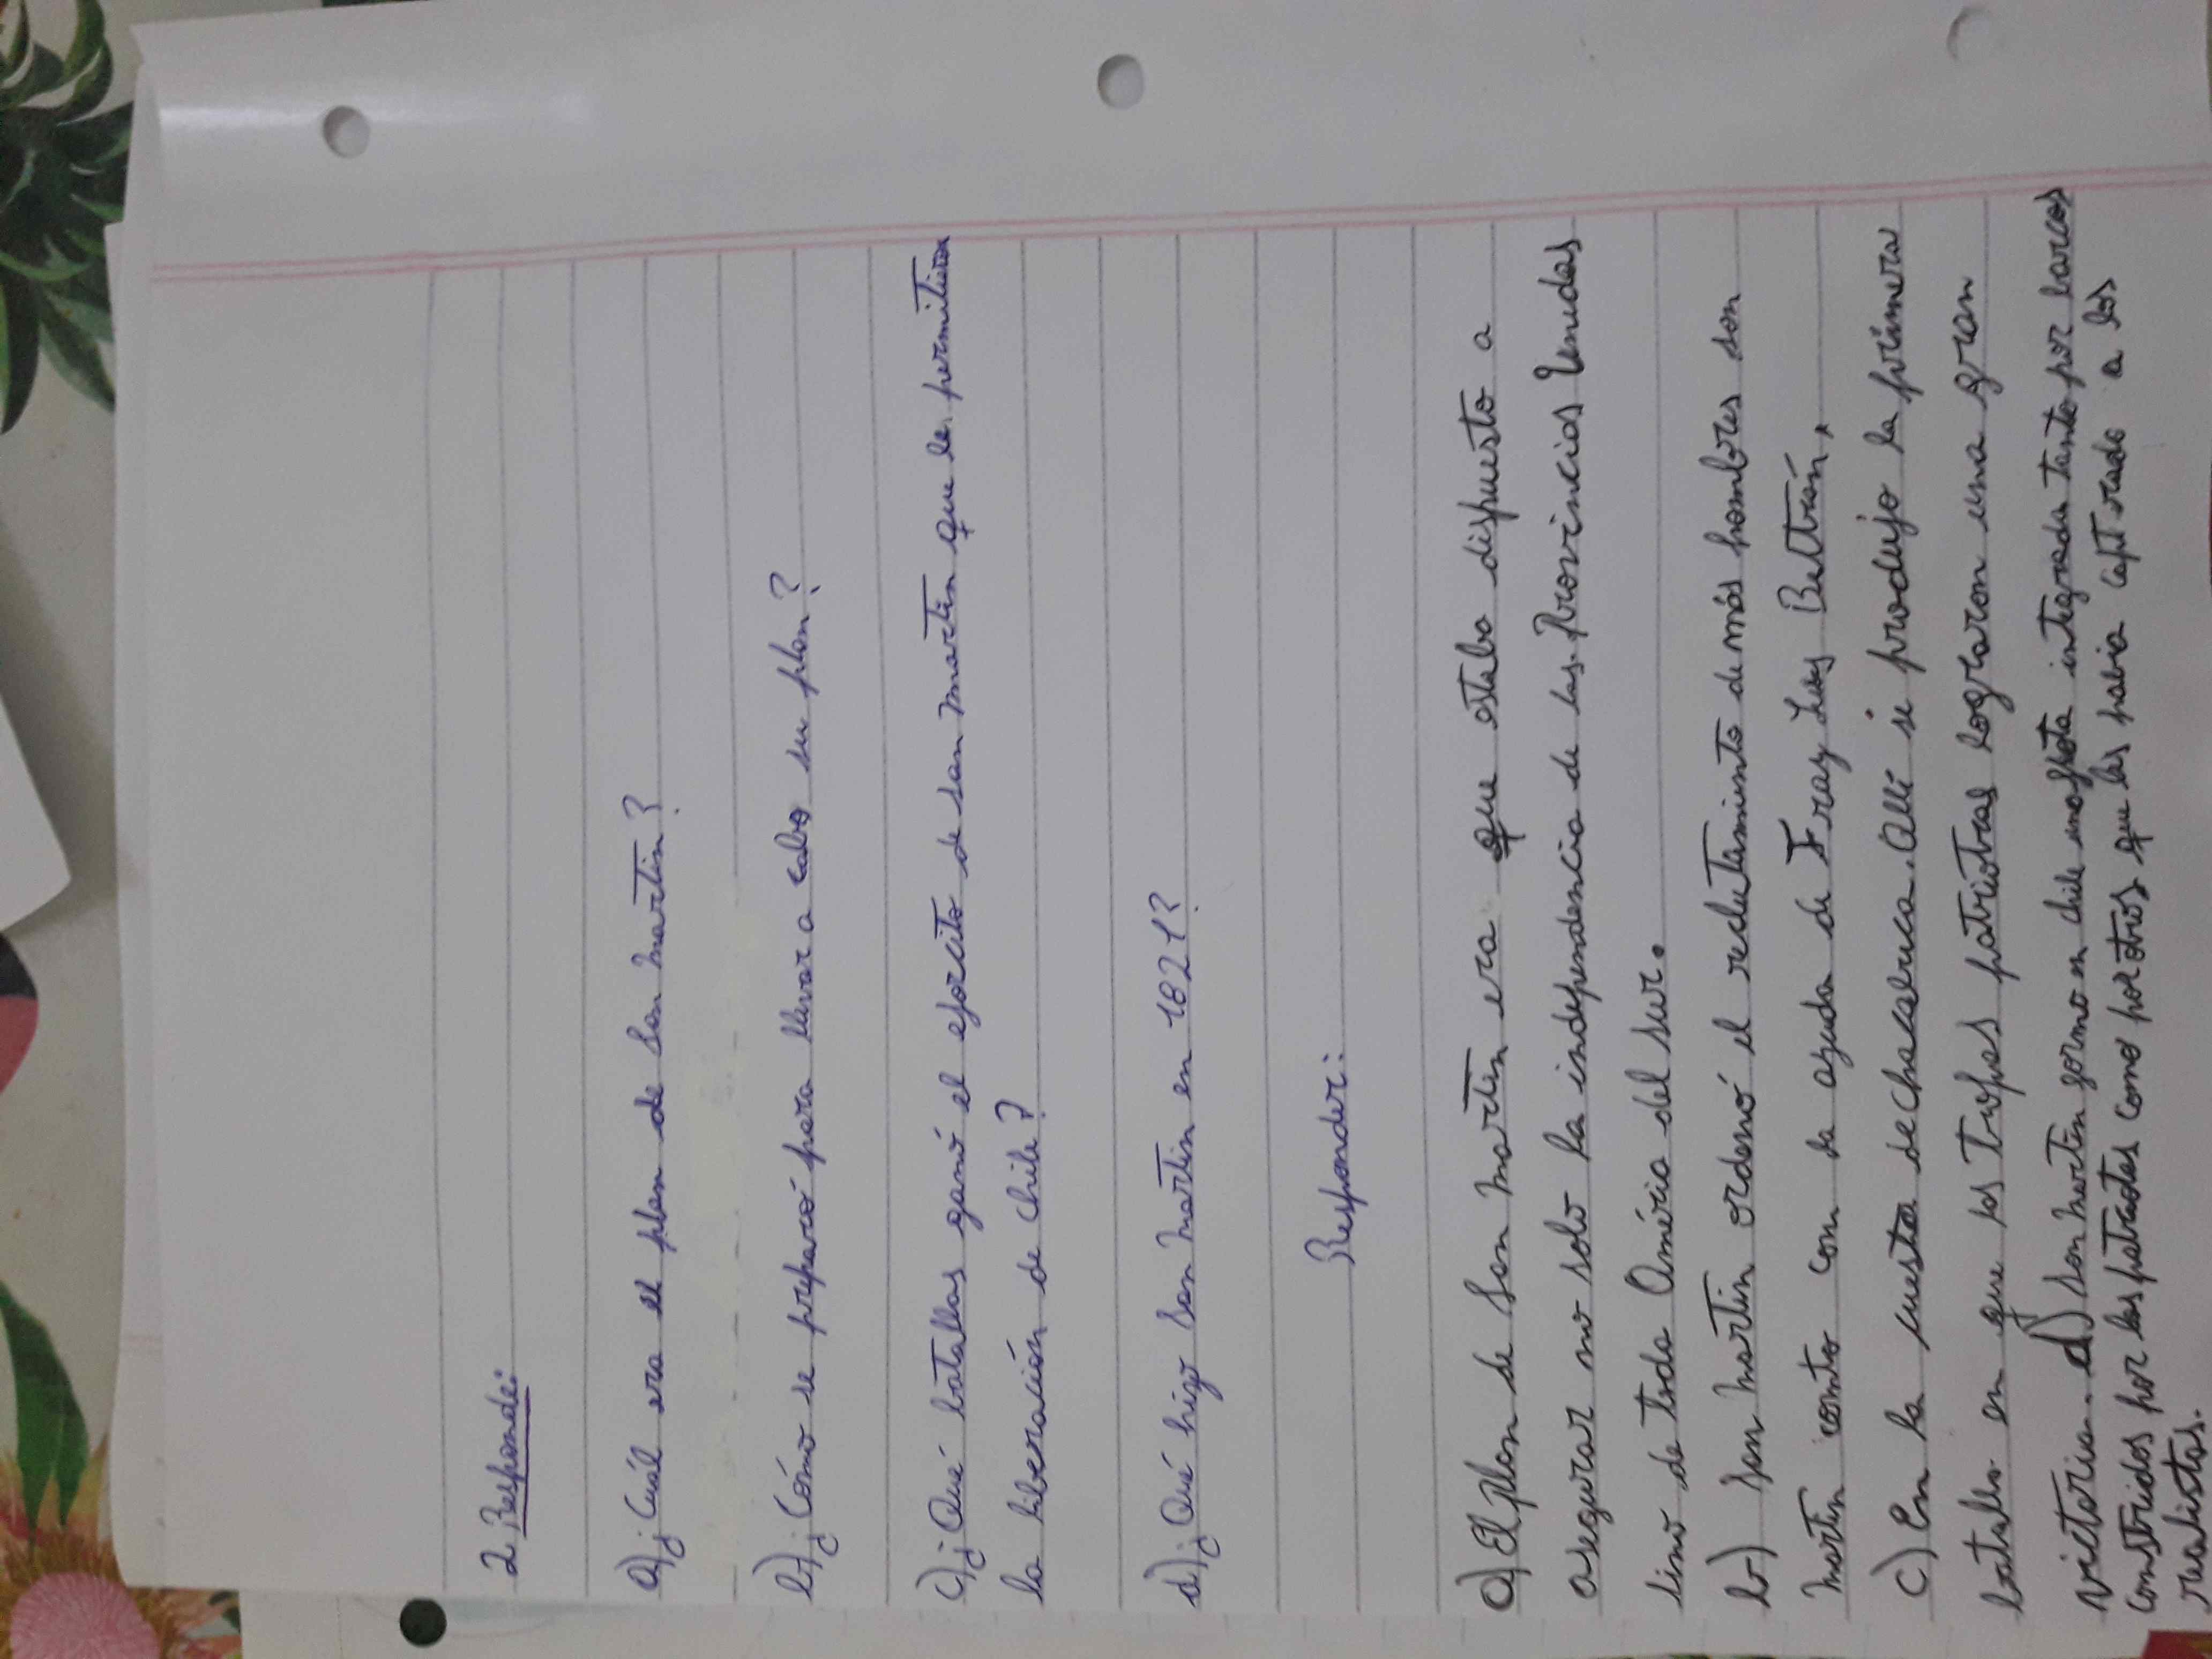 2 Responde:
a) ¿Cuál era el plan de San Martin?
b) ¿Cómo se preparó para llevar a cabo su plan?
c) ¿Qué batallas ganó el ejercito de San Martin que le permitiera
la liberación de Chile?
d) ¿Qué hizo San Martin en 1821?
Responder:
a) El plan de San Martin era que estaba dispuesto a
asegurar no solo la independencia de las Provincias Unidas
sino de toda América del sur.
b) San Martin ordenó el reclutamiento de más hombres son
Martin conto con la ayuda de Fray Luis Beltrán,
c) En la cuesta de chacabuca. Allí se produjo la primera
batalla en que las tropas patriotras lograron una gran
victoria. d) San Martin formo en chile una flota integrada tanto por barcos
construidos por los patriotas como por otros que las habia capturado a los
realistas.